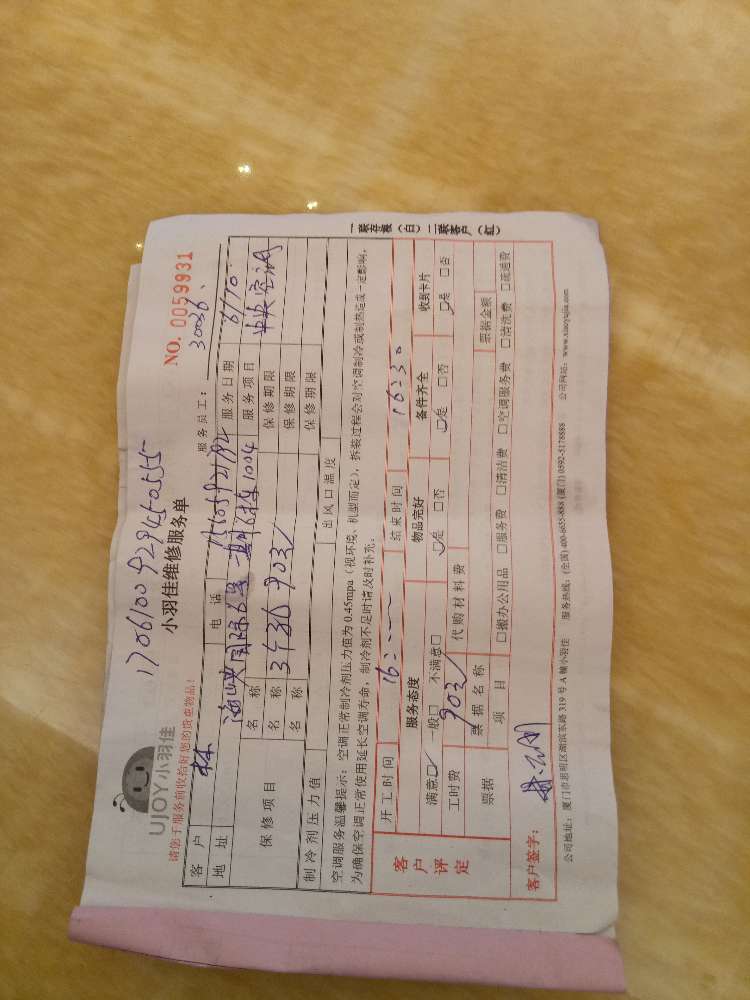 1706100929450555
UJOY小羽佳
小羽佳维修服务单
NO. 0059931
请您于服务前收拾好您的贵重物品!
服务员工: 30036
客 户 林 电 话 15105921192 服务日期
地 址 海峡国际 1004 服务项目 中央空调
保修项目 名 称 保修期限
名 称 3台 903/ 保修期限
名 称 保修期限
制冷剂压力值 出风口温度
空调服务温馨提示: 空调正常制冷剂压力值为 0.45mpa (视环境、机型而定), 拆装过程会对空调制冷或制热造成一定影响,
为确保空调正常使用延长空调寿命, 制冷剂不足时请及时补充。
客户评定
开工时间 16: 结束时间 16:30
服务态度 物品完好 备件齐全 收到卡片
满意□ 一般□ 不满意□ □是 □否 □是 □否 □是 □否
工时费 903/ 代购材料费
票据 票据名称 票据金额
项 目 □搬办公用品 □服务费 □清洁费 □空调服务费 □清洗费 □疏通费
客户签字:
公司地址: 厦门市思明区湖滨东路 319 号 A 幢小羽佳 服务热线: (全国) 400-6655-888 (厦门) 0592-5178888 公司网站: www.xiaoyujia.com
一联存根(白) 二联客户(红)